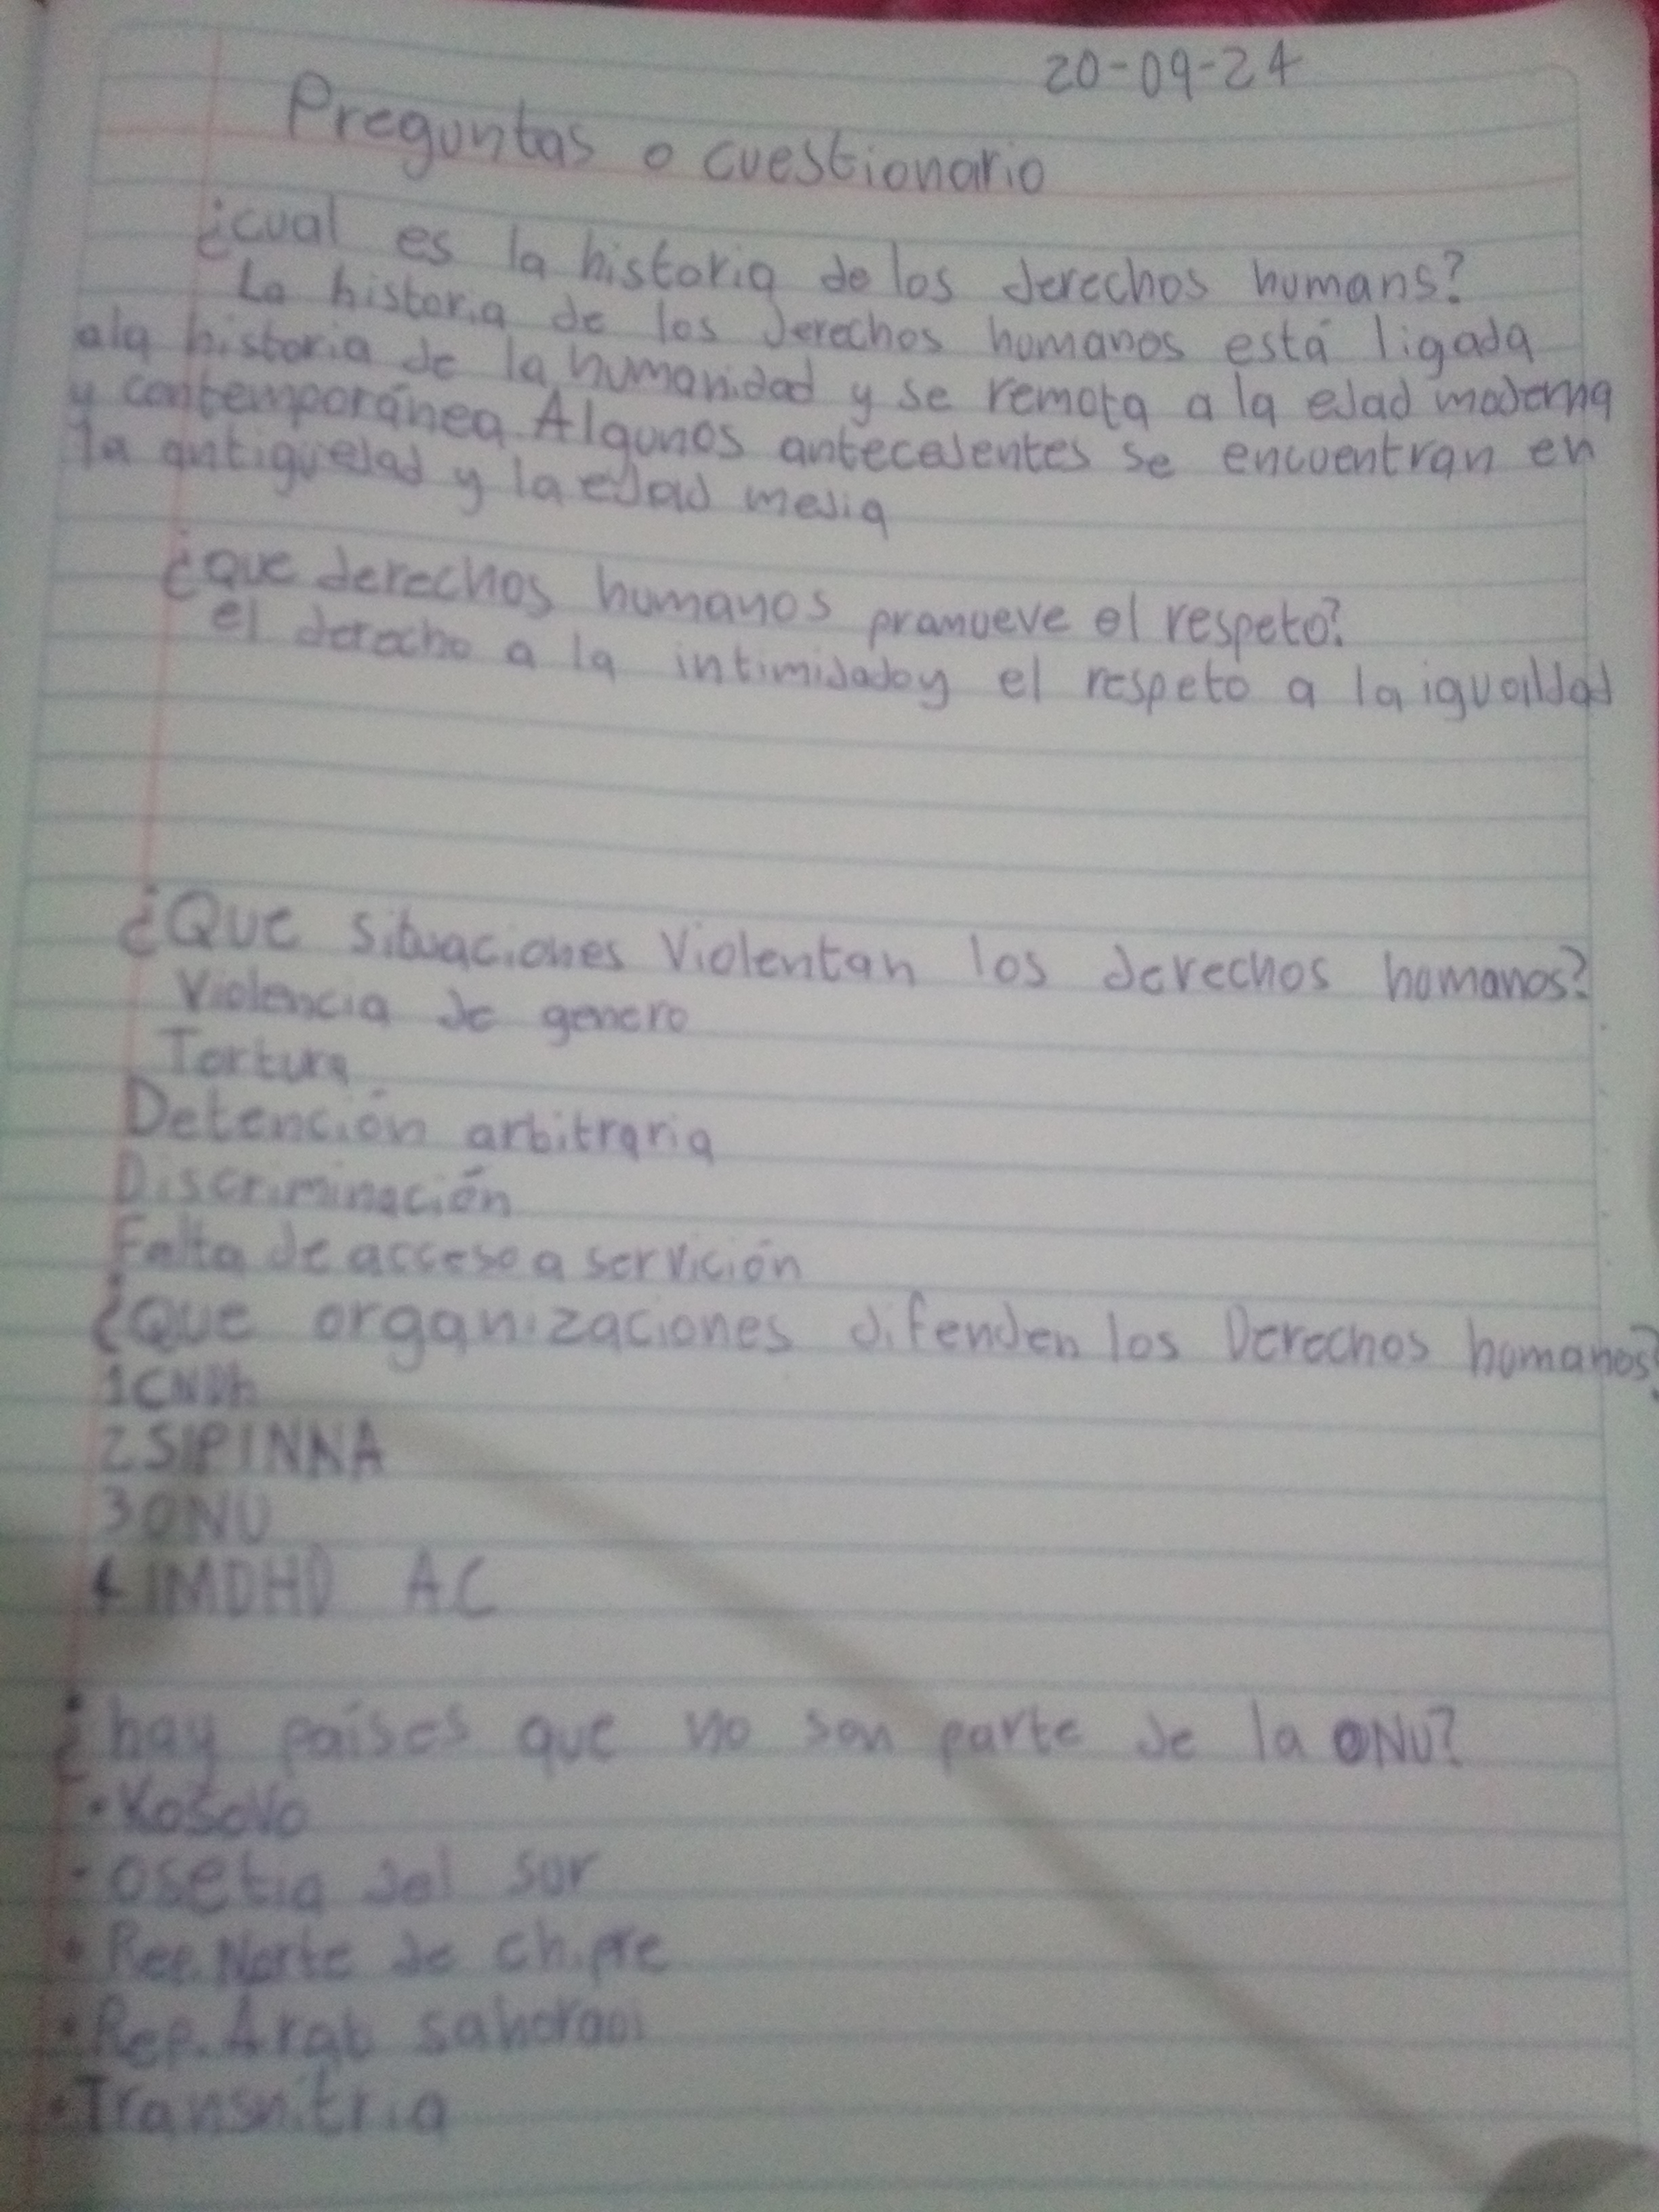 20-09-24
Preguntas o cuestionario
¿cual es la historia de los derechos humans?
La historia de los derechos humanos está ligada
ala historia de la humanidad y se remota a la edad moderna
y contemporánea. Algunos antecedentes se encuentran en
la antiguedad y la edad media
¿que derechos humanos promueve el respeto?
el derecho a la intimidadoy el respeto a la igualdad
¿Que situaciones violentan los derechos humanos?
Violencia de genero
Tortura
Detención arbitraria
Discriminación
Falta de acceso a servición
¿Que organizaciones difenden los Derechos humanos?
1 CNDh
2 SIPINNA
3 ONU
4 IMDHD AC
¿hay países que no son parte de la ONU?
• Kosovo
• Osetia del sur
• Rep. Norte de chipre
• Rep. Arab saharaoi
• Transnitria